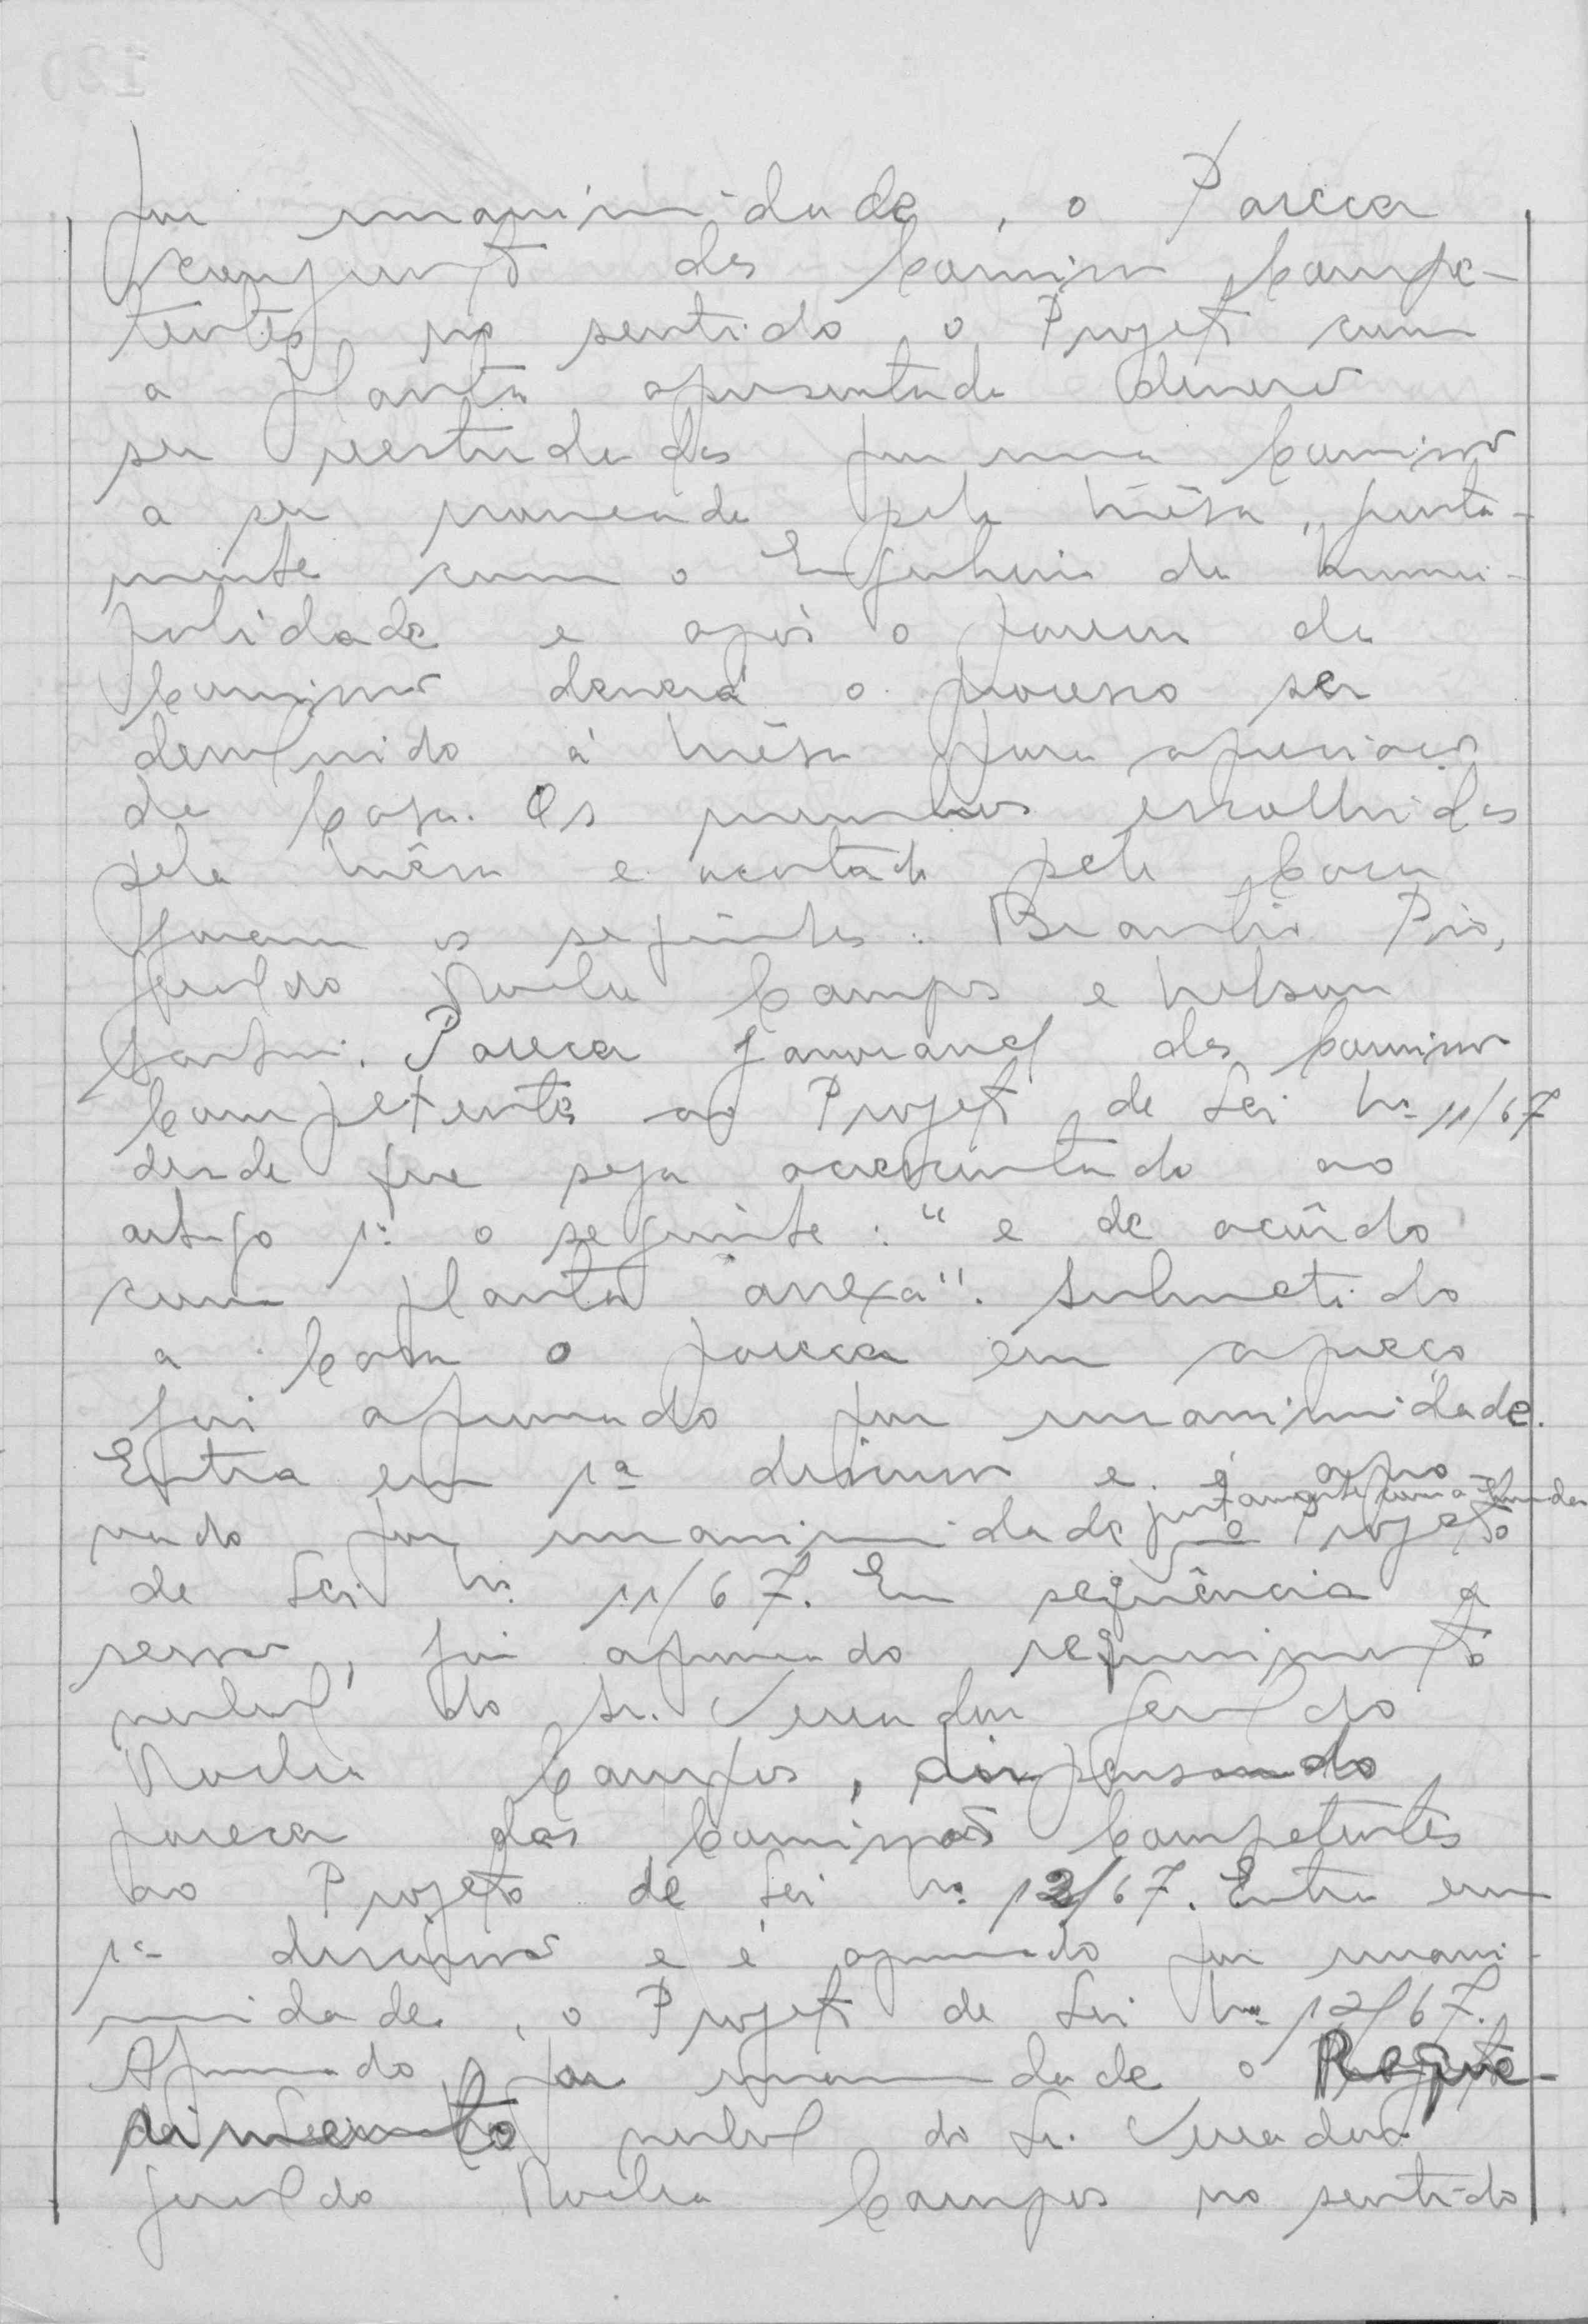 por unanimidade, o Parecer
conjunto das Comissões Compe-
tentes no sentido o Projeto com
a planta apresentada deverá
ser reestudados por uma Comissão
a ser nomeada pela Mêsa, junta-
mente com o Engenheiro da Munici-
palidade e após o parecer da
Comissão deverá o processo ser
devolvido à Mêsa para apreciação
da Casa. Os membros escolhidos
pela Mêsa e acertado pela Casa
foram os seguintes: Braulio Pio,
Geraldo Rocha Campos e Nelson
Parecer favoravel das Comissões
Competentes ao Projeto de Lei Nº 11/67
desde que seja acrescentado ao
artigo 1º o seguinte: "e de acôrdo
com planta anexa". Submetido
a Casa o parecer em apreço
foi aprovado por unanimidade.
Entra em 1ª discussão e é apro-
vado por unanimidade juntamente com a Emenda o Projeto
de Lei Nº 11/67. Em seqüência a
sessão, foi aprovado requerimento
verbal do Sr. Vereador Geraldo
Rocha Campos, dispensando
parecer das Comissões Competentes
ao Projeto de Lei Nº 12/67. Entra em
1ª discussão e é aprovado por unani-
midade, o Projeto de Lei Nº 12/67.
Aprovado por unanimidade o Reque-
rimento verbal do Sr. Vereador
Geraldo Rocha Campos no sentido